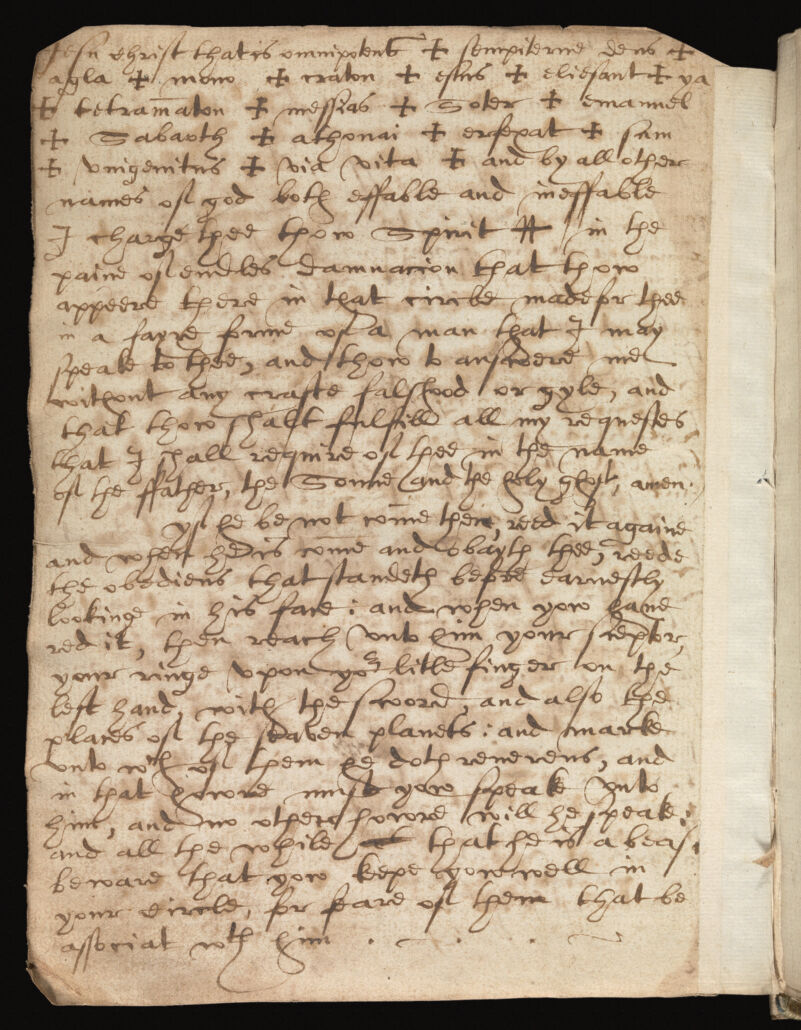 Jesu christ that is omnipotent ✠ sempiterne deus ✠
agla ✠ mono ✠ craton ✠ esus ✠ eliesant ✠ ya
✠ tetramaton ✠ messias ✠ Soter ✠ emanuel
✠ Sabaoth ✠ athonai ✠ ersepat ✠ sum
✠ vnigenitus ✠ via vita ✠ and by all other
names of god both effable and ineffable
I charge thee thow Spirit N in the
paine of endles damnacion that thow
appeere there in that circle made for thee
in a fayre forme of a man that I may
speake to thee, and thow to answere me
without any crafte falshood or gyle, and
that thow shalt fulfill all my requestes
that I shall require of thee in the name
of the ffather, the Sonne and the holy ghost, amen.
yf he be not come then, reed it againe
and when he is come and obayth thee, reede
the obediens that standeth before earnestly
looking in his face: and when yow haue
red it, then reach vnto him your sceptor,
your ringe vpon yor litle finger on the
left hand, with the sword, and also the
places of the seaven planets: and marke
vnto wch of them he doth reuerens, and
in that howre must yow speake vnto
him, and no other howre will he speake:
and all the while that he is a beast
beware that yow kepe yow well in
your circle, for feare of them that be
associat wth him .